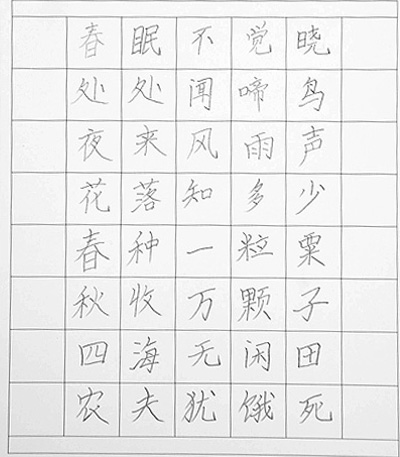 春眠不觉晓
处处闻啼鸟
夜来风雨声
花落知多少
春种一粒粟
秋收万颗子
四海无闲田
农夫犹饿死